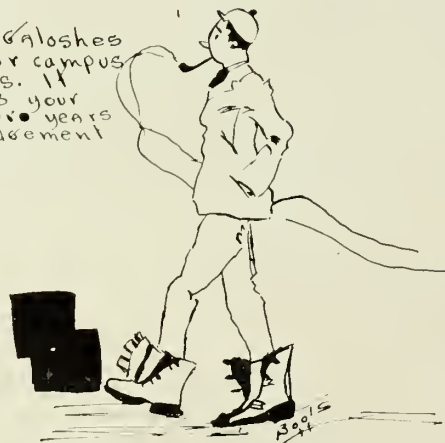 Galoshes
r campus
s. It
s your
ro years
usement
Boots